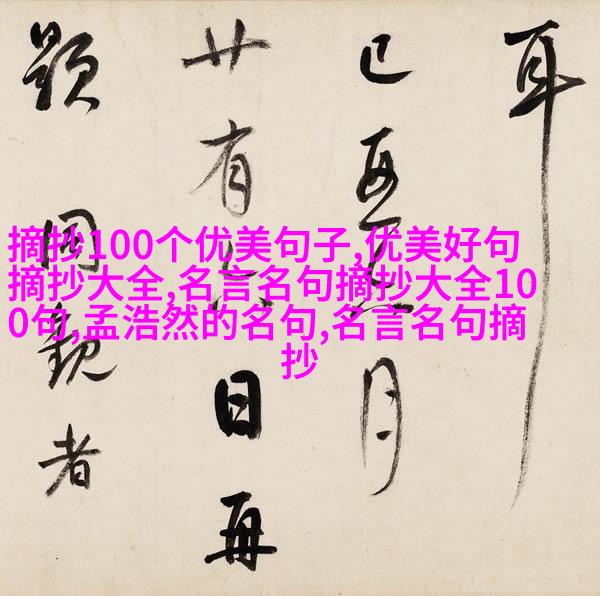 摘抄100个优美句子,优美好句
摘抄大全,名言名句摘抄大全10
0句,孟浩然的名句,名言名句摘
抄
耳
己酉五月
廿有六日再
題同觀者